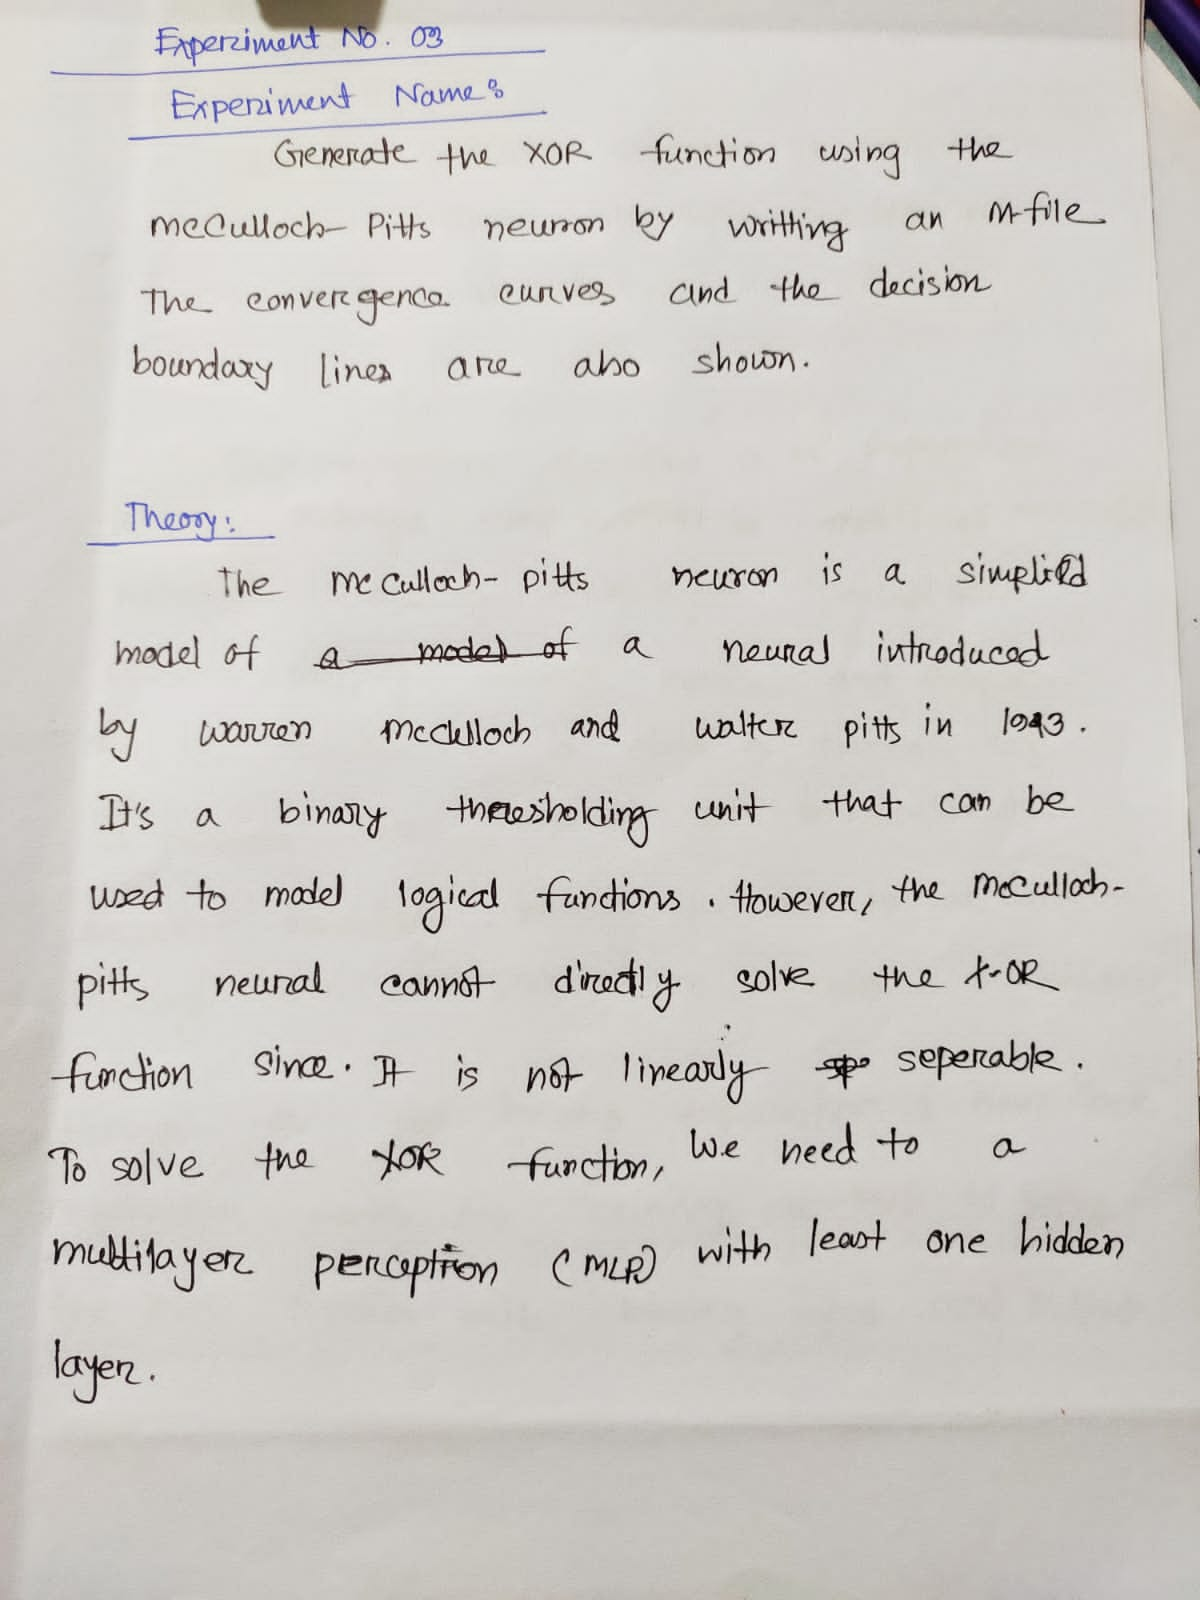 Experiment No. 03
Experiment Name:
Generate the XOR function using the
McCulloch-Pitts neuron by writting an M-file
The convergence curves and the decision
boundary lines are also shown.
Theory:
The McCulloch-pitts neuron is a simplifid
model of a model of a neural introduced
by warren McCulloch and walter pitts in 1943.
It's a binary thresholding unit that can be
used to model logical functions. However, the McCulloch-
pitts neural cannot directly solve the X-OR
function since. It is not linearly seperable.
To solve the XOR function, We need to a
multilayer perception (MLP) with least one hidden
layer.